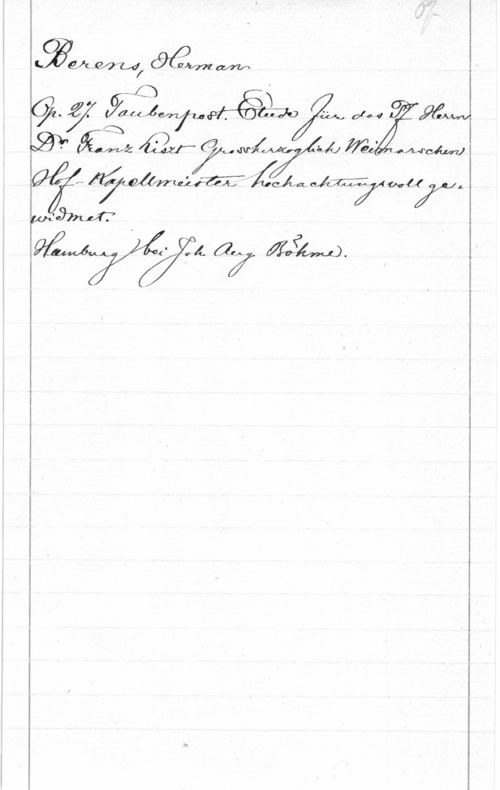 Berens, Herman
Op. 27. Taubenpost. Etude für das Pf Herrn
Dr Franz Liszt Grossherzoglich Weimarschen
Hof-Kapellmeister hochachtungsvoll ge-
widmet.
Hamburg bei Joh. Aug Böhme.